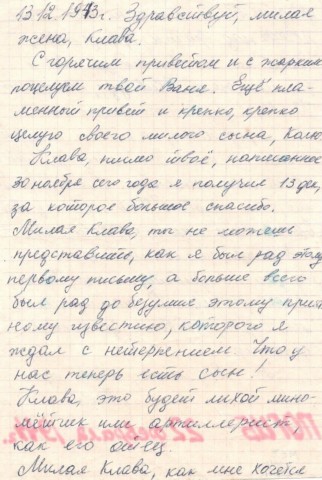 13.12.1943г. Здравствуй, милая
жена, Клава.
С горячим приветом и с жарким
поцелуем твой Ваня. Ещё пла-
менный привет и крепко, крепко
целую своего милого сына, Колю
Клава, письмо твоё, написанное
30 ноября сего года я получил 13 дек,
за которое большое спасибо.
Милая Клава, ты не можешь
представить, как я был рад этому
первому письму, а больше всего
был рад до безумия этому прият
ному известию, которого я
ждал с нетерпением. Что у
нас теперь есть сын!
Клава, это будет лихой мино-
мётчик или артиллерист,
как его отец.
Милая Клава, как мне хочется